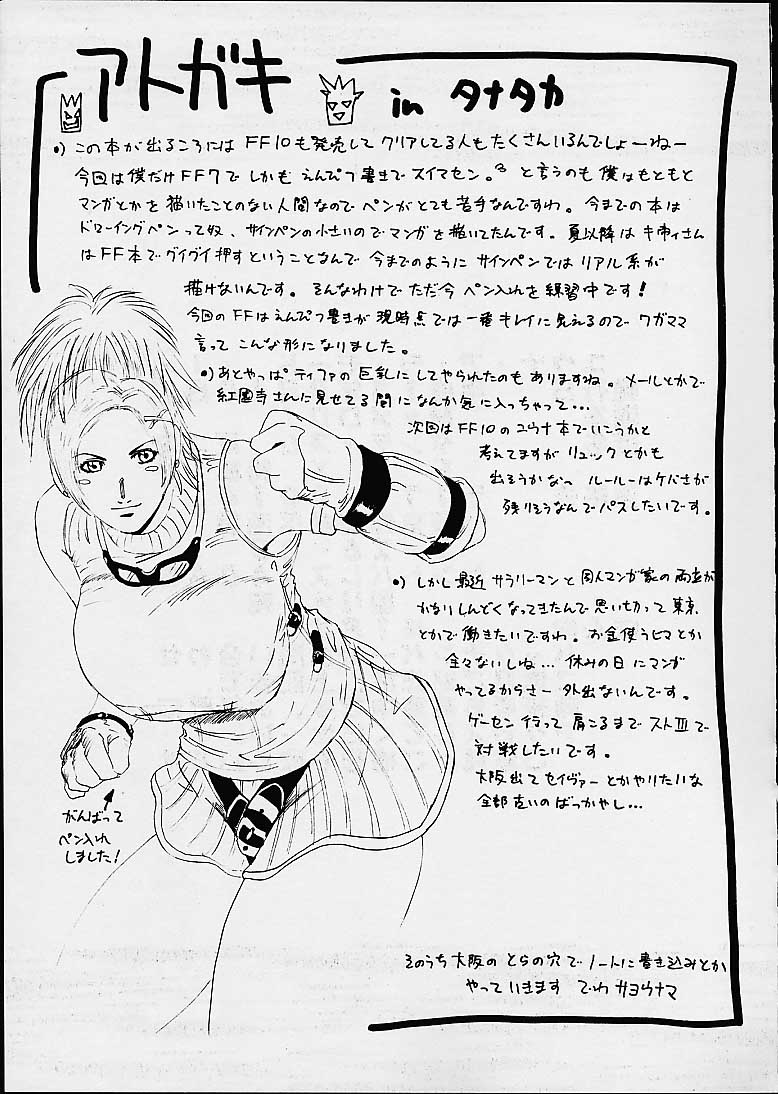 アトガキ
in タナタカ
•) この本が出るころには FF10も発売して クリアしてる人もたくさんいるんでしょーねー
今回は僕だけFF7で しかも えんぴつ書きで スイマセン。 と言うのも 僕はもともと
マンガとかを 描いたことのない人間なので ペンがとても苦手なんですわ。今までの本は
ドローイングペンって奴、サインペンの小さいのでマンガを描いてたんです。夏以降は さんは
FF本で グイグイ押す ということなんで 今までのように サインペンでは リアル系が
描けないんです。 そんなわけで ただ今 ペン入れを練習中です!
今回のFFはえんぴつ書きが 現時点では一番キレイに見えるので ワガママ
言って こんな形になりました。
•) あとやっぱ ティファの巨乳に してやられたのもありますね。 メールとかで
紅園寺さんに見せてる間に なんか気に入っちゃって…
次回はFF10のユウナ本でいこうかと
考えてますが リュックとかも
出そうかなっ ルールーはケバさが
残りそうなんでパスしたいです。
•) しかし最近 サラリーマンと同人マンガ家の両立が
かなりしんどくなってきたんで思い切って東京
とかで働きたいですわ。お金使うヒマとか
全々ないしね… 休みの日にマンガ
やってるからさー 外出ないんです。
ゲーセン行って 肩こるまで ストⅢで
対戦したいです。
大阪出て セイヴァーとかやりたいな
全部古いのばっかやし…
がんばって
ペン入れ
しました!
そのうち大阪の とらの穴で ノートに書き込みとか
やって いきます でわ サヨウナマ